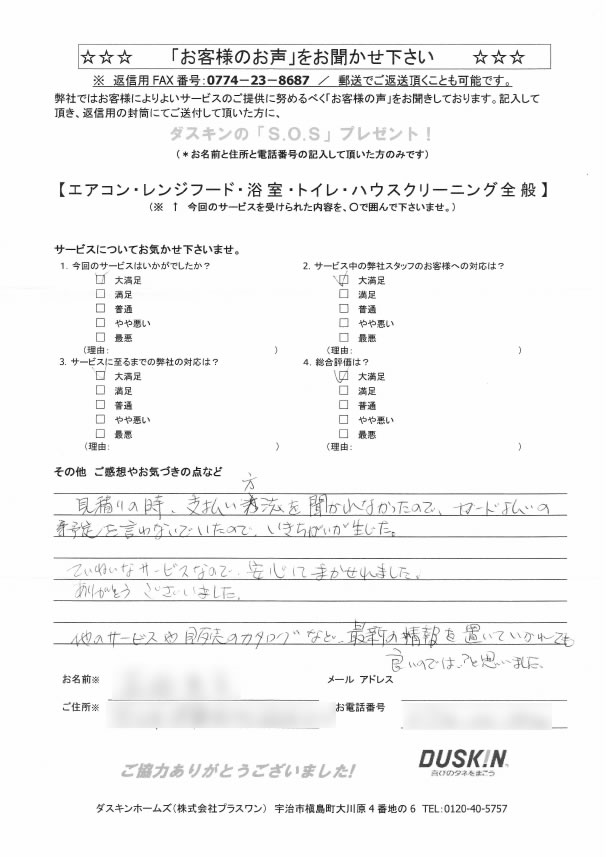 ☆☆☆ 「お客様のお声」をお聞かせ下さい ☆☆☆
※ 返信用FAX番号：0774－23－8687 ／ 郵送でご返送頂くことも可能です。
弊社ではお客様によりよいサービスのご提供に努めるべく「お客様の声」をお聞きしております。記入して
頂き、返信用の封筒にてご送付して頂いた方に、
ダスキンの「S.O.S」プレゼント！
（＊お名前と住所と電話番号の記入して頂いた方のみです）
【エアコン・レンジフード・浴室・トイレ・ハウスクリーニング全般】
（※ ↑ 今回のサービスを受けられた内容を、〇で囲んで下さいませ。）
サービスについてお気かせ下さいませ。
1. 今回のサービスはいかがでしたか？
大満足
満足
普通
やや悪い
最悪
（理由： ）
2. サービス中の弊社スタッフのお客様への対応は？
大満足
満足
普通
やや悪い
最悪
（理由： ）
3. サービスに至るまでの弊社の対応は？
大満足
満足
普通
やや悪い
最悪
（理由： ）
4. 総合評価は？
大満足
満足
普通
やや悪い
最悪
（理由： ）
その他 ご感想やお気づきの点など
見積りの時、支払い方法を聞かれなかったので、カード払いの
予定を言わないでいたので、いきちがいが生じた。
ていねいなサービスなので、安心してまかせれました。
ありがとうございました。
他のサービスや販売のカタログなど、最新の情報を置いていかれても
良いのでは？と思いました。
お名前※
メール アドレス
ご住所※
お電話番号
ご協力ありがとうございました！
DUSKIN
喜びのタネをまこう
ダスキンホームズ（株式会社プラスワン） 宇治市槇島町大川原４番地の６ TEL：0120-40-5757